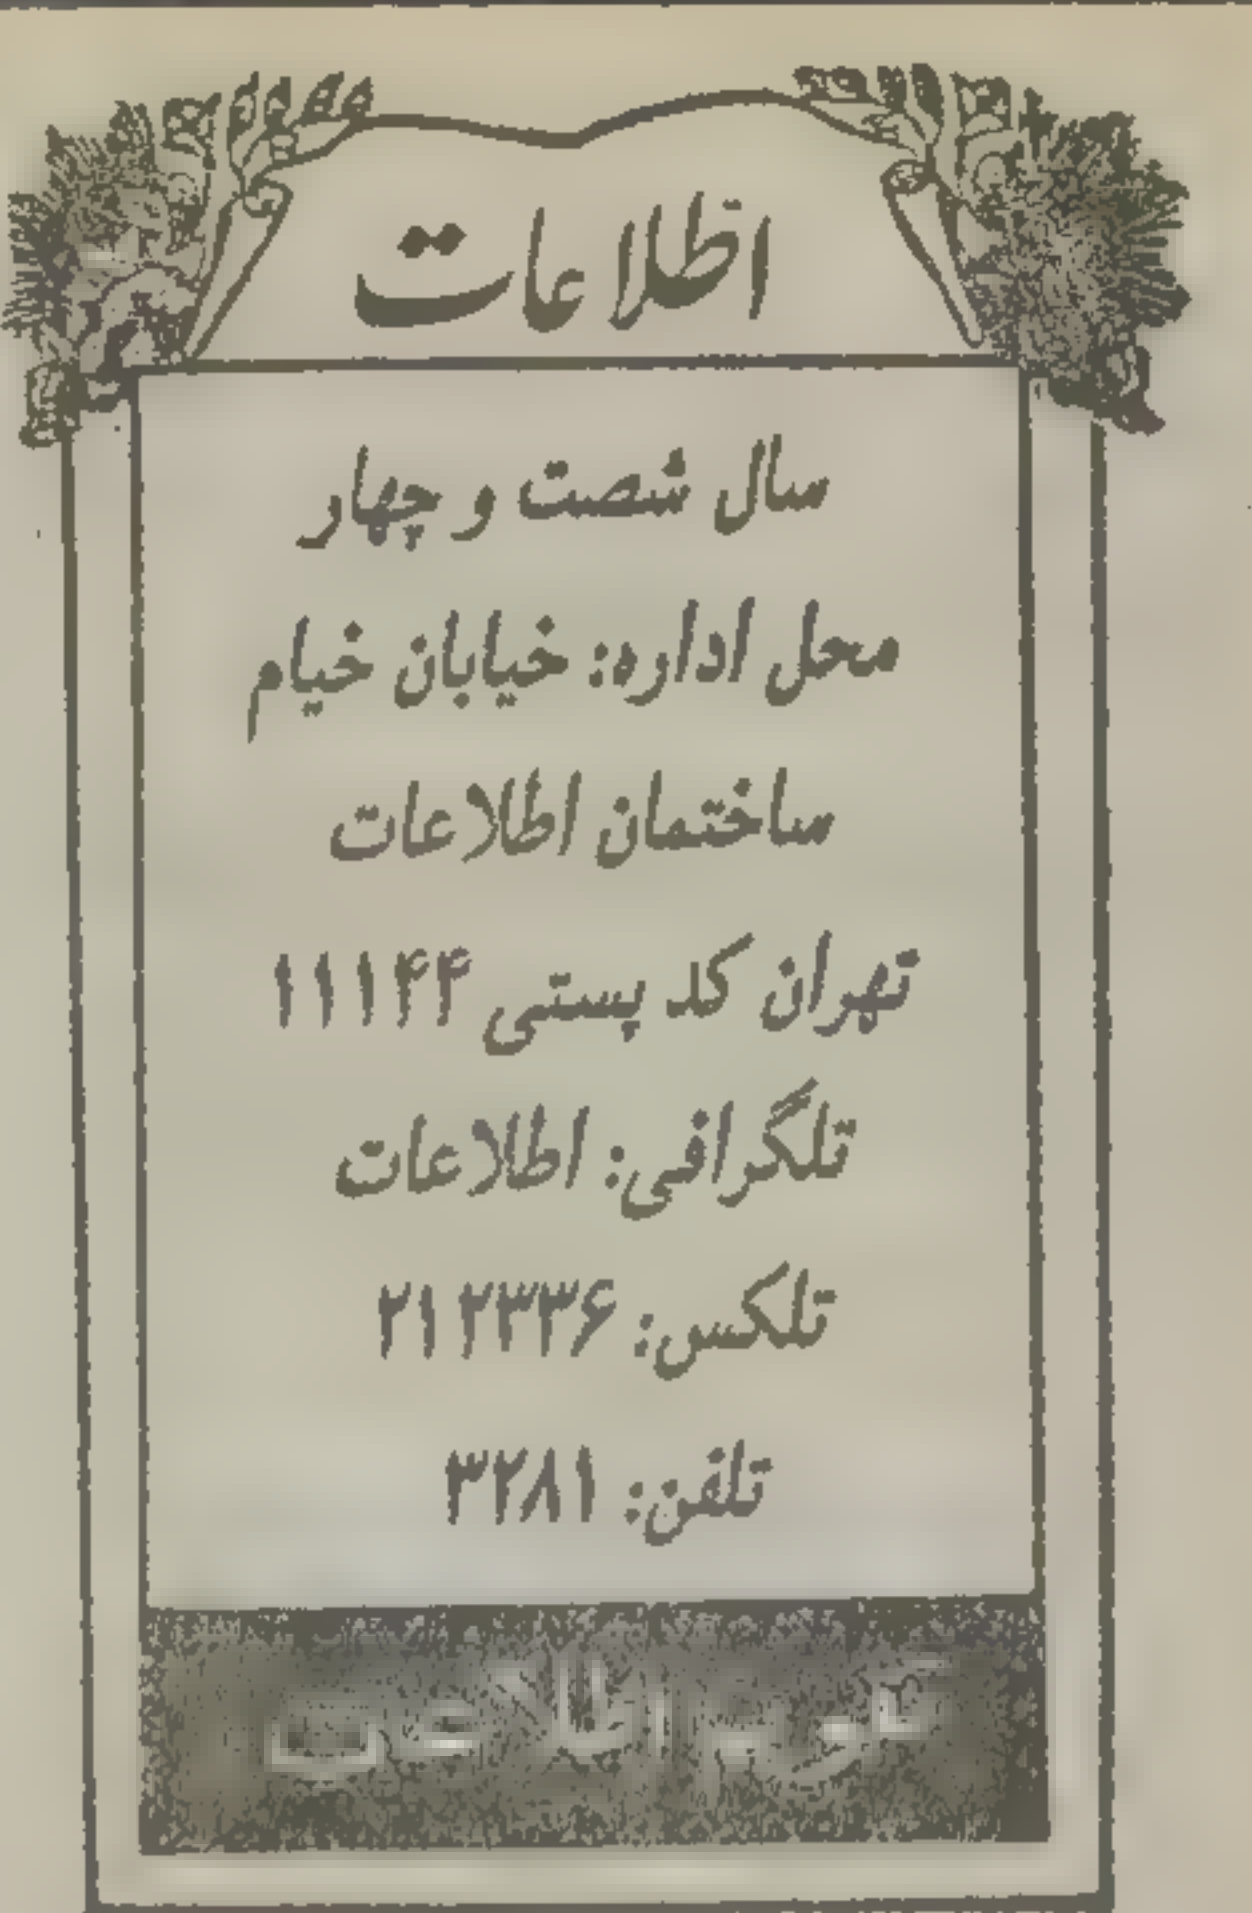 اطلاعات
سال شصت و چهار
محل اداره: خیابان خیام
ساختمان اطلاعات
تهران کد پستی ۱۱۱۴۴
تلگرافی: اطلاعات
تلکس: ۲۱۲۳۳۶
تلفن: ۳۲۸۱
اطلاعات